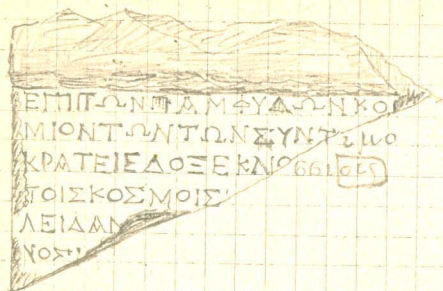 ΕΠΙΤΩΝΠΑΜΦΥΛΩΝΚΟ
ΜΙΟΝΤΩΝΤΩΝΣΥΝΤιμο
ΚΡΑΤΕΙΕΔΟΞΕΚΝΩσσιοις
ΤΟΙΣΚΟΣΜΟΙΣ
ΛΕΙΔΑΝ
ΝΟΣ